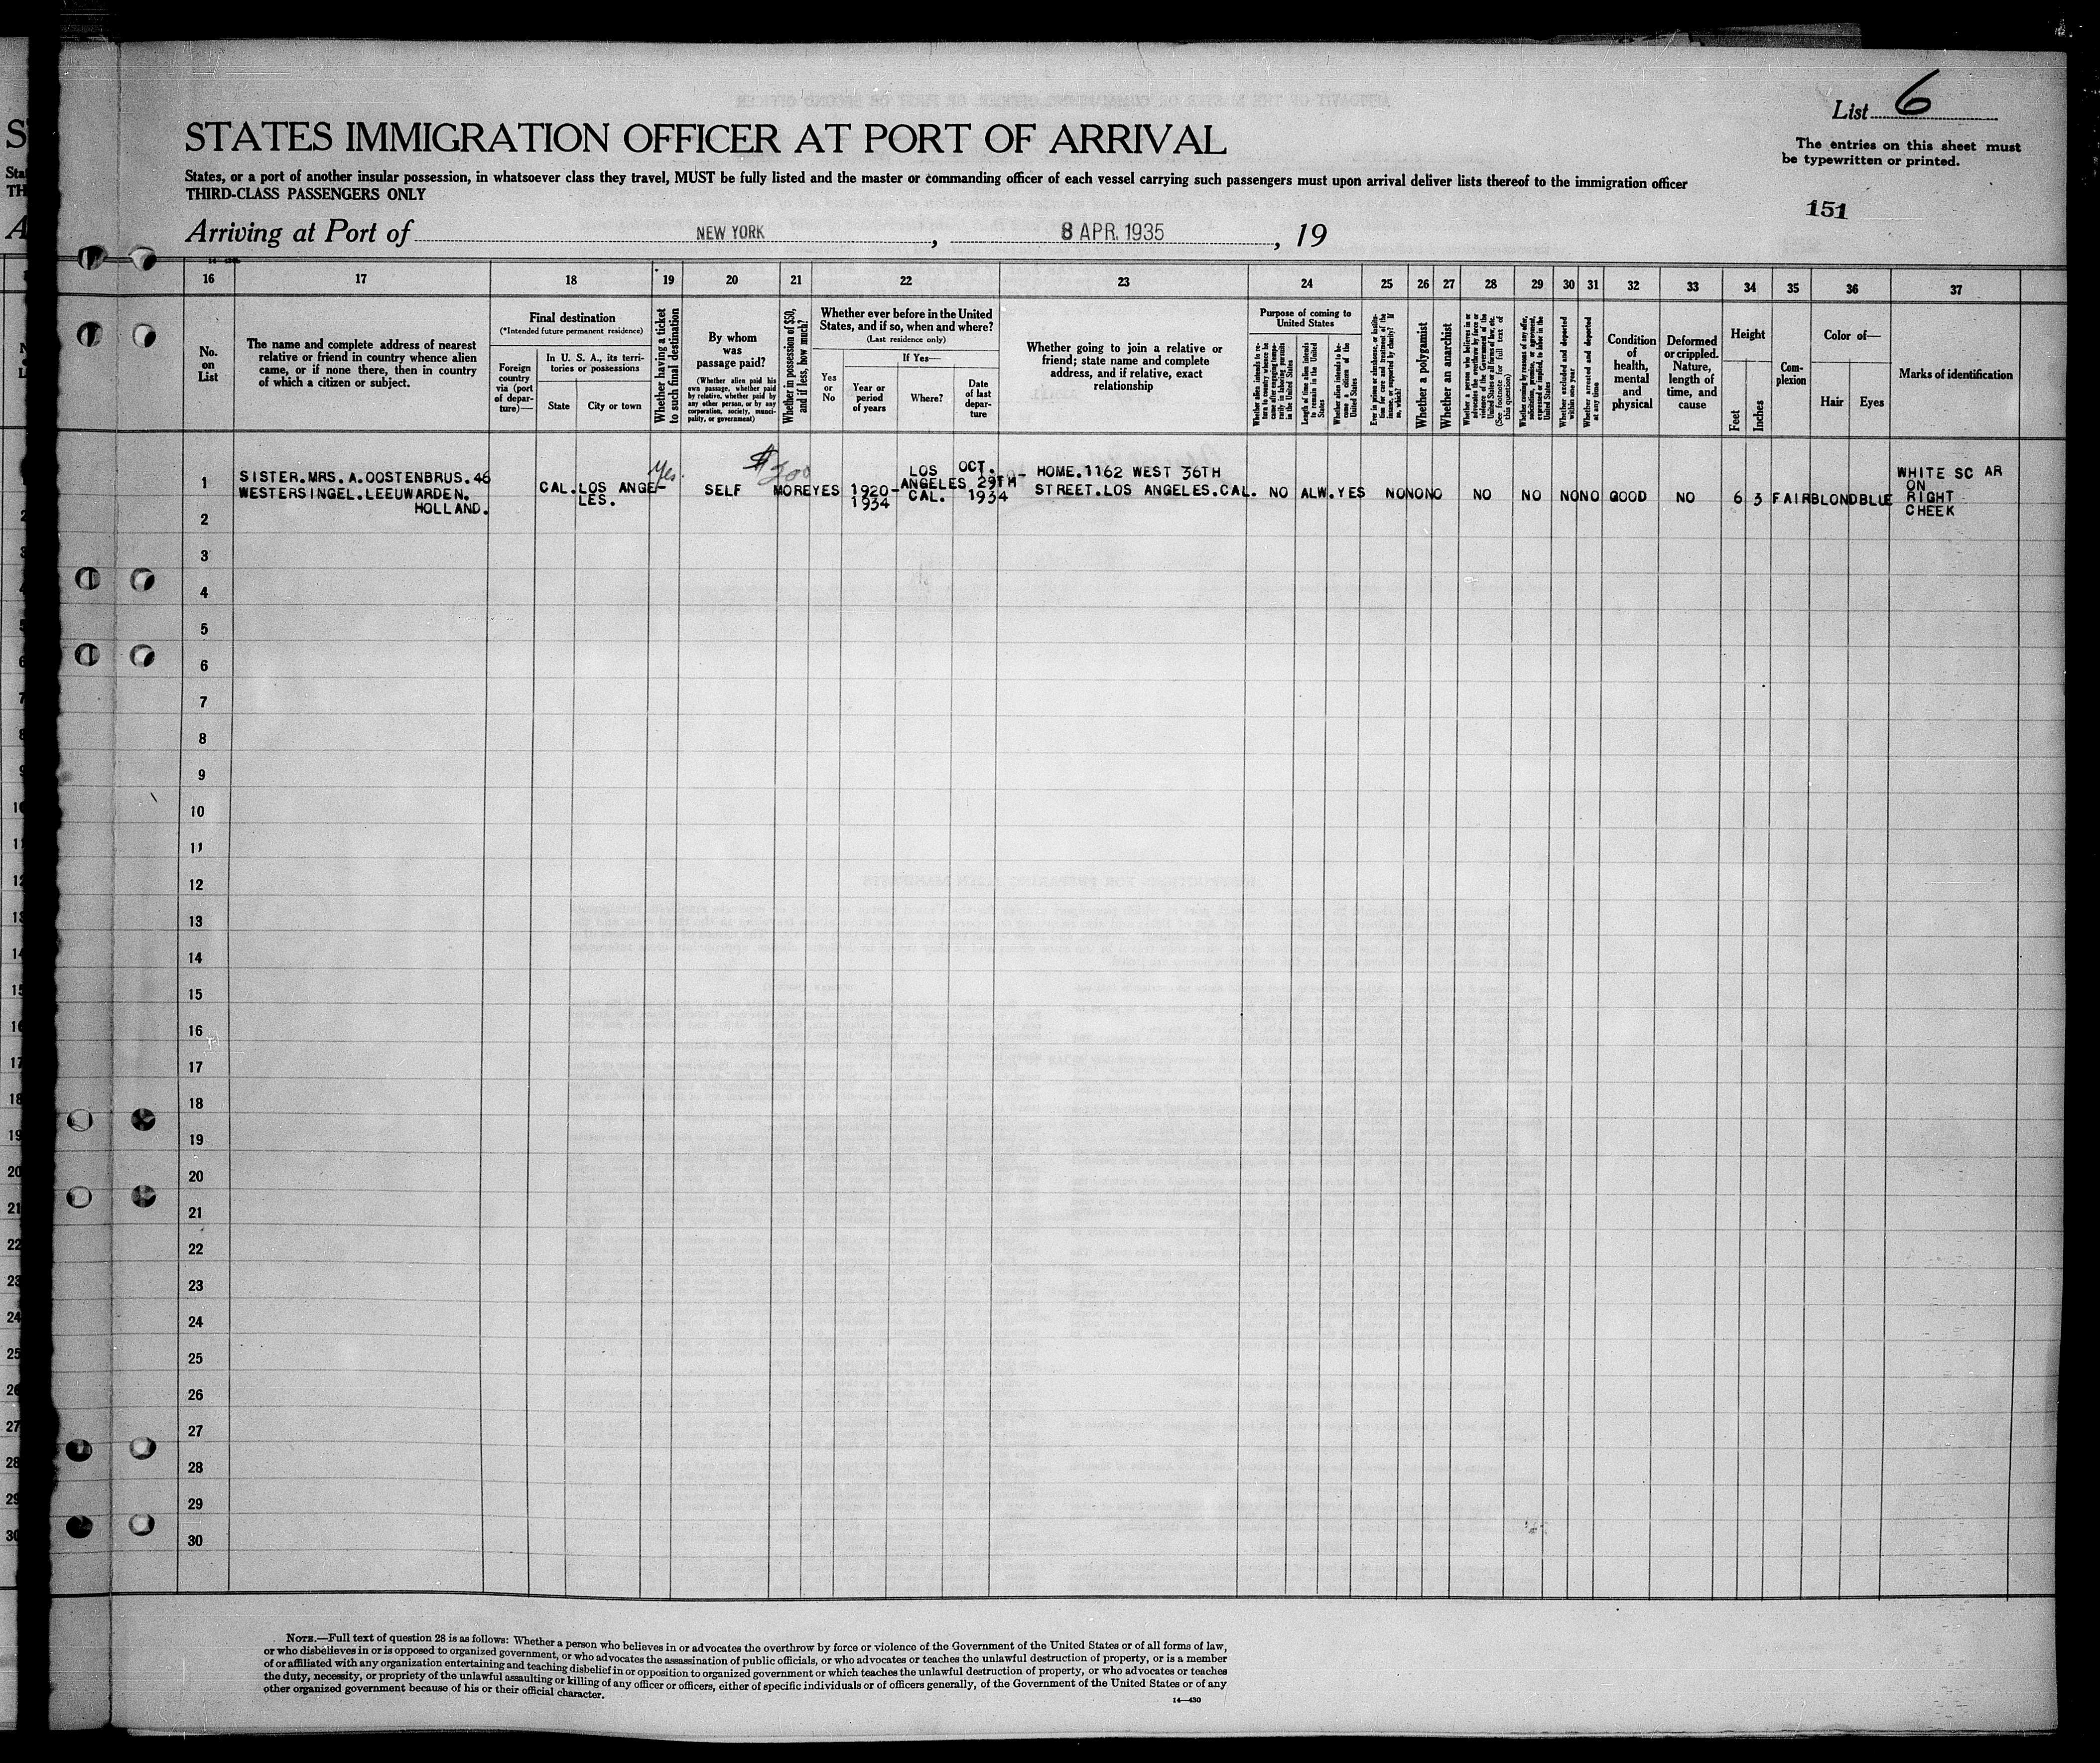 List 6
STATES IMMIGRATION OFFICER AT PORT OF ARRIVAL
The entries on this sheet must
be typewritten or printed.
States, or a port of another insular possession, in whatsoever class they travel, MUST be fully listed and the master or commanding officer of each vessel carrying such passengers must upon arrival deliver lists thereof to the immigration officer
THIRD-CLASS PASSENGERS ONLY
151
Arriving at Port of NEW YORK, 8 APR. 1935, 19
16 17 18 19 20 21 22 23 24 25 26 27 28 29 30 31 32 33 34 35 36 37
No.
on
List
The name and complete address of nearest
relative or friend in country whence alien
came, or if none there, then in country
of which a citizen or subject.
Final destination
(*Intended future permanent residence)
Foreign
country
via (port
of depar-
ture)—
In U. S. A., its terri-
tories or possessions
State
City or town
Whether having a ticket
to such final destination
By whom
was
passage paid?
(Whether alien paid his
own passage, whether paid
by relative, whether paid by
any other person, or by any
corporation, society, munici-
pality, or government)
Whether in possession of $50,
and if less, how much?
Whether ever before in the United
States, and if so, when and where?
(Last residence only)
Yes
or
No
If Yes—
Year or
period
of years
Where?
Date
of last
depar-
ture
Whether going to join a relative or
friend; state name and complete
address, and if relative, exact
relationship
Purpose of coming to
United States
Whether alien intends to re-
turn to country whence he
came after engaging tempo-
rarily in laboring pursuits
in the United States
Length of time alien intends
to remain in the United
States
Whether alien intends to be-
come a citizen of the
United States
Ever in prison or almshouse, or institu-
tion for care and treatment of the
insane, or supported by charity? If
so, which?
Whether a polygamist
Whether an anarchist
Whether a person who believes in or
advocates the overthrow by force or
violence of the Government of the
United States or all forms of law, etc.
(See footnote for full text of
this question)
Whether coming by reasons of any offer,
solicitation, promise, or agreement,
expressed or implied, to labor in the
United States
Whether excluded and deported
within one year
Whether arrested and deported
at any time
Condition
of
health,
mental
and
physical
Deformed
or crippled.
Nature,
length of
time, and
cause
Height
Feet
Inches
Com-
plexion
Color of—
Hair
Eyes
Marks of identification
1
SISTER.MRS.A.OOSTENBRUS.46
WESTERSINGEL.LEEUWARDEN.
HOLLAND.
CAL.
LOS ANGE-
LES.
Yes.
SELF
$300
MORE
YES
1920-
1934
LOS
ANGELES
CAL.
OCT.
29TH-
1934
HOME.1162 WEST 36TH
STREET.LOS ANGELES.CAL.
NO ALW. YES NO NO NO NO NO NO NO GOOD NO 6 3 FAIR BLOND BLUE
WHITE SC AR
ON
RIGHT
CHEEK
2
3
4
5
6
7
8
9
10
11
12
13
14
15
16
17
18
19
20
21
22
23
24
25
26
27
28
29
30
NOTE.—Full text of question 28 is as follows: Whether a person who believes in or advocates the overthrow by force or violence of the Government of the United States or of all forms of law,
or who disbelieves in or is opposed to organized government, or who advocates the assassination of public officials, or who advocates or teaches the unlawful destruction of property, or is a member
of or affiliated with any organization entertaining and teaching disbelief in or opposition to organized government or which teaches the unlawful destruction of property, or who advocates or teaches
the duty, necessity, or propriety of the unlawful assaulting or killing of any officer or officers, either of specific individuals or of officers generally, of the Government of the United States or of any
other organized government because of his or their official character.
14—430